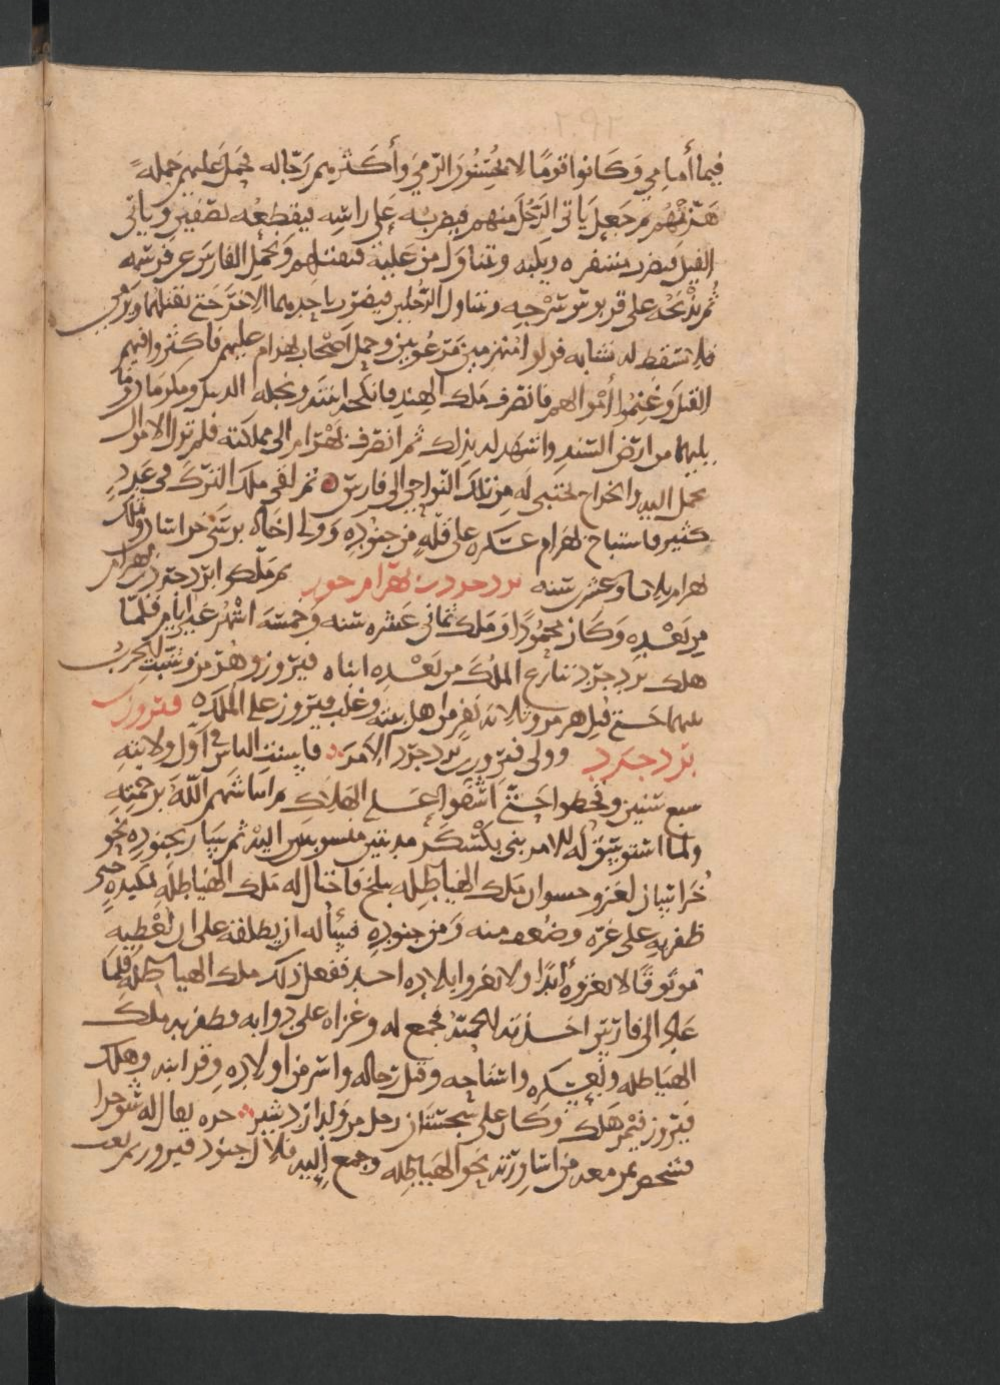 فيما أمامي وكانوا قوما لا يحسنون الرمي وأكثرهم رجاله فحمل عليهم حملة
هزمهم مر جعل ياتي الرجل منهم فيضربه على راسه فيقطعه نصفين وياتي
الفيل فيضرب مشفره ويكبه ويتناول من عليه فيقتلهم ويحمل الفارس عن فرسه
ثم يذبحه على قربوس سرجه ويتناول الرجلين فيضرب باحدهما الاخر حتى يقتلهما ويرمي
فلا تسقط له نشابه فولوا منهزمين مرعوبين وحمل اصحاب بهرام عليهم فاكثروا فيهم
القتل وغنموا أموالهم فانصرف ملك الهند فانكحه ابنته ونحله الديبل ومكرمان وما
يليها من ارض السند واشهد له بذلك ثم انصرف بهرام الى مملكته فلم تزل الاموال
تحمل اليه والخراج يجتبى له من تلك النواحي الى فارس ثم لقي ملك الترك في عدد
كثير فاستباح بهرام عسكره على قلة من جنوده وولى اخاه نرسي خراسان وملك
بهرام ثلاثا وعشرين سنه يزدجرد بن بهرام جور ثم ملكوا يزدجرد بن بهرام
من بعده وكان محمودا وملك ثماني عشره سنه وخمسة اشهر غير ايام فلما
هلك يزدجرد تنازع الملك من بعده ابناه فيروز وهرمز ونشبت الحرب
بينهما حتى قتل هرمز وثلاثة نفر من اهل بيته وغلب فيروز على الملك فيروز بن
يزدجرد وولى فيروز بن يزدجرد الامر فاسنت الناس في أول ولايته
سبع سنين وقحطوا حتى اشفوا على الهلاك ثم اغاثهم الله برحمته
ولما استوسق له الامر بنى بكسكر مدينتين منسوبتين اليه ثم سار بجنوده نحو
خراسان لغزو خشنوان ملك الهياطلة ببلخ فاحتال له ملك الهياطلة بمكيده حتى
ظفر به على غرة وضعف منه ومن جنوده فسأله ان يطلقه على ان يعطيه
موثوقا لا يغزوه أبدا ولا يغزو بلاده احد ففعل ذلك ملك الهياطله فلما
عاد الى فارس اخذته الحمية فجمع له وغزاه على دوابه فظفر به ملك
الهياطله وبعسكره واستباحه وقتل رجاله واسر من اولاده وقرابته وهلك
فيروز فيمن هلك وكان على سجستان رجل من ولد اردشير خره يقال له شوخرا
فشخص بمن معه من اساورته نحو الهياطله وجمع اليه فلال جنود فيروز ثم بعث